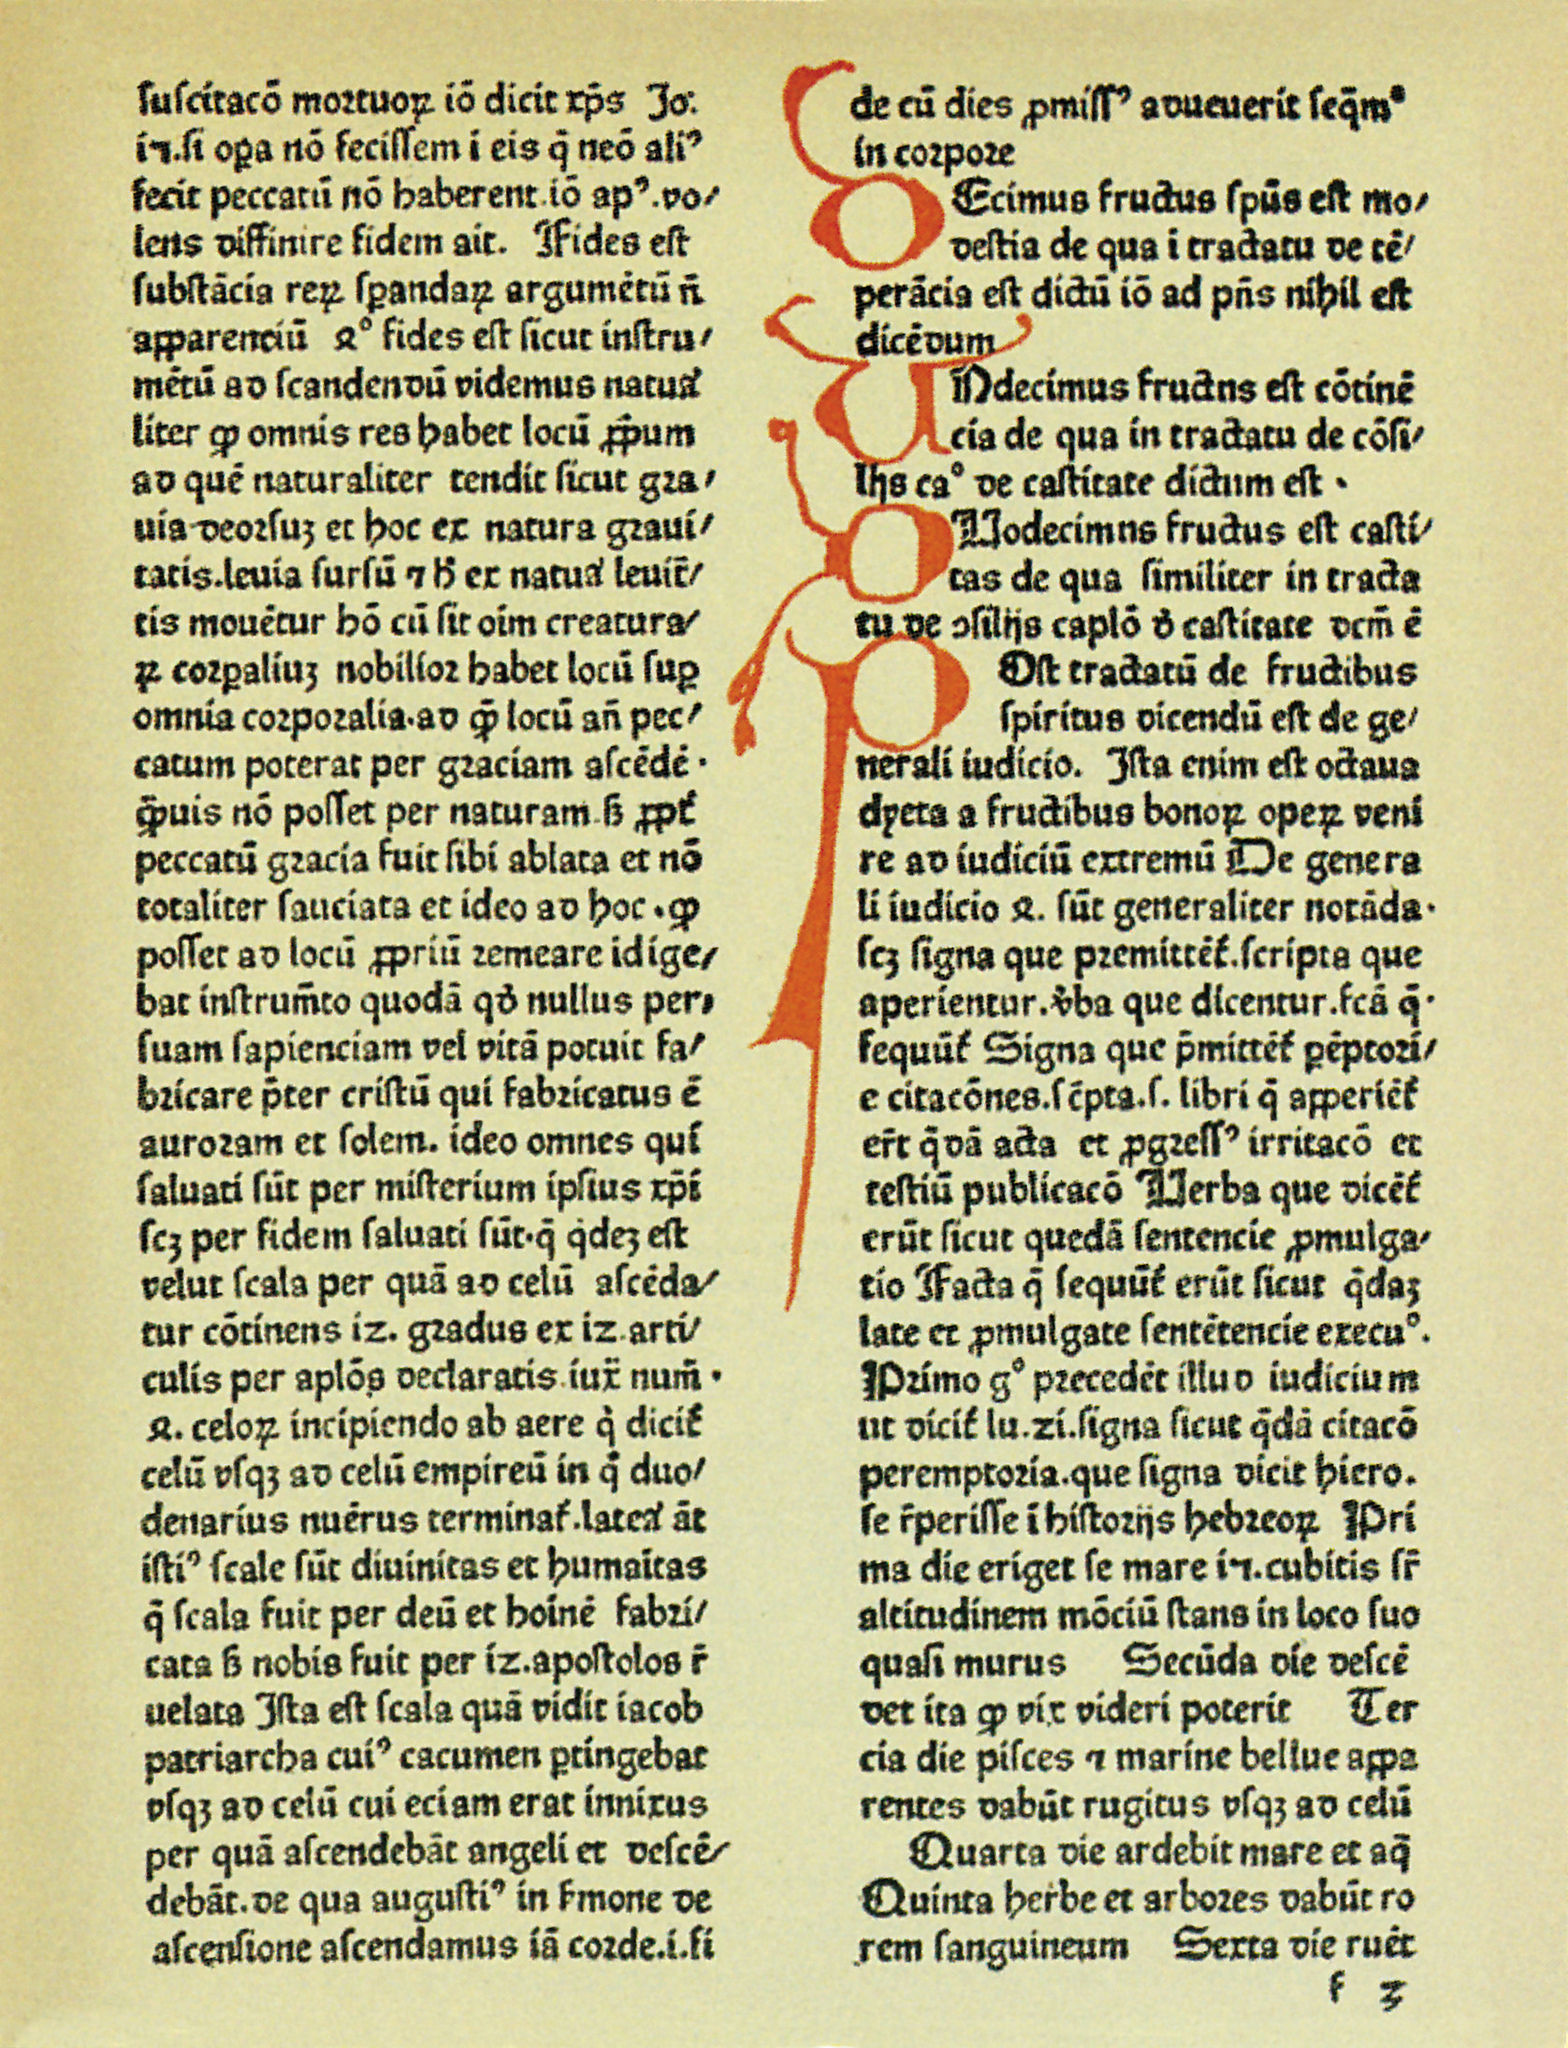 suscitacō mortuoꝝ iō dicit xp̄s Jo:
i⁊.si oꝑa nō fecissem i eis q̄ neō aliꝰ
fecit peccatū nō haberent.iō apꝰ.vo/
lens diffinire fidem ait. Fides est
substācia reꝝ sꝑandaꝝ argumētū n̄
apparenciū ꝝº fides est sicut instru/
mētū ad scandendū videmus natuᷓ
liter ꝙ omnis res habet locū ꝓpum
ad quē naturaliter tendit sicut gra/
uia deorsuꝫ et hoc ex natura graui/
tatis.leuia sursū ⁊ ex natuᷓ leuit̄/
tis mouētur hō cū sit oim creatura/
ꝝ corꝑaliuꝫ nobilior habet locū suꝑ
omnia corporalia.ad locū an̄ pec/
catum poterat per graciam ascēdē.
q̄uis nō posset per naturam.ß ꝓpt̄
peccatū gracia fuit sibi ablata et nō
totaliter sauciata et ideo ad hoc.ꝙ
posset ad locū ꝓpriū remeare idige/
bat instrum̄to quodā qđ nullus per/
suam sapienciam vel vitā potuit fa/
bricare p̄ter cristū qui fabricatus ē
auroram et solem. ideo omnes qui
saluati sūt per misterium ipsius xp̄i
scꝫ per fidem saluati sūt.q̄ q̇deꝫ est
velut scala per quā ad celū ascēda/
tur cōtinens iz. gradus ex iz.arti/
culis per aplōs declaratis.iux̄ num̄.
ꝝ. celoꝝ incipiendo ab aere q̇ dicit᷑
celū vsqꝫ ad celū empireū in q̇ duo/
denarius nuērus terminat᷑.lateᷓ āt
istiꝰ scale sūt diuinitas et humaītas
q̄ scala fuit per deū et hoīnē fabri/
cata ß nobis fuit per iz.apostolos r̄
uelata Ista est scala quā vidit iacob
patriarcha cuiꝰ cacumen ꝑtingebat
vsqꝫ ad celū cui eciam erat innixus
per quā ascendebāt angeli et descē/
debāt.de qua augustiꝰ in s̄mone de
ascensione ascendamus iā corde.i.si
de cū dies ꝓmissꝰ aduenerit seq̄mꝰ
in corpore
DEcimus fructus spūs est mo/
destia de qua i tractatu de tē/
perācia est dictū iō ad pn̄s nihil est
dicēdum
UNdecimus fructus est cōtinē
cia de qua in tractatu de cōsi/
lijs caº de castitate dictum est.
DUodecimus fructus est casti/
tas de qua similiter in tracta
tu de ↄsilijs caplō đ castitate dcm̄ ē
POst tractatū de fructibus
spiritus dicendū est de ge/
nerali iudicio. Ista enim est octaua
dyeta a fructibus bonoꝝ opeꝝ veni
re ad iudiciū extremū De genera
li iudicio ꝝ. sūt generaliter notāda.
scꝫ signa que premittēt᷑.scripta que
aperientur.v̄ba que dicentur.fcā q̄.
sequūt᷑ Signa que p̄mittēt᷑ ꝑēptori/
e citacōnes.sc̄pta.s. libri q̄ apperiēt᷑
er̄t q̄dā acta et ꝓgressꝰ irritacō et
testiū publicacō Verba que dicēt᷑
erūt sicut quedā sentencie ꝓmulga/
tio Facta q̄ sequūt᷑ erūt sicut q̇daꝫ
late et ꝓmulgate sentētencie execuº.
Primo gº precedēt illud iudicium
ut dicit᷑ lu.zi.signa sicut q̄dā citacō
peremptoria.que signa dicit hiero.
se r̄perisse ī historijs hebreoꝝ Pri
ma die eriget se mare i⁊.cubitis sr̄
altitudinem mōciū stans in loco suo
quasi murus Secūda die descē
det ita ꝙ vix videri poterit Ter
cia die pisces ⁊ marine bellue appa
rentes dabūt rugitus vsqꝫ ad celū
Quarta die ardebit mare et aq̄
Quinta herbe et arbores dabūt ro
rem sanguineum Sexta die ruēt
f 3